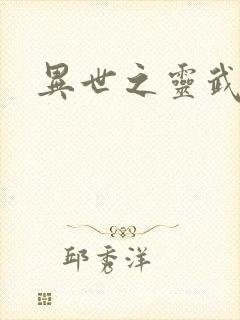 異世之靈武
邱秀洋